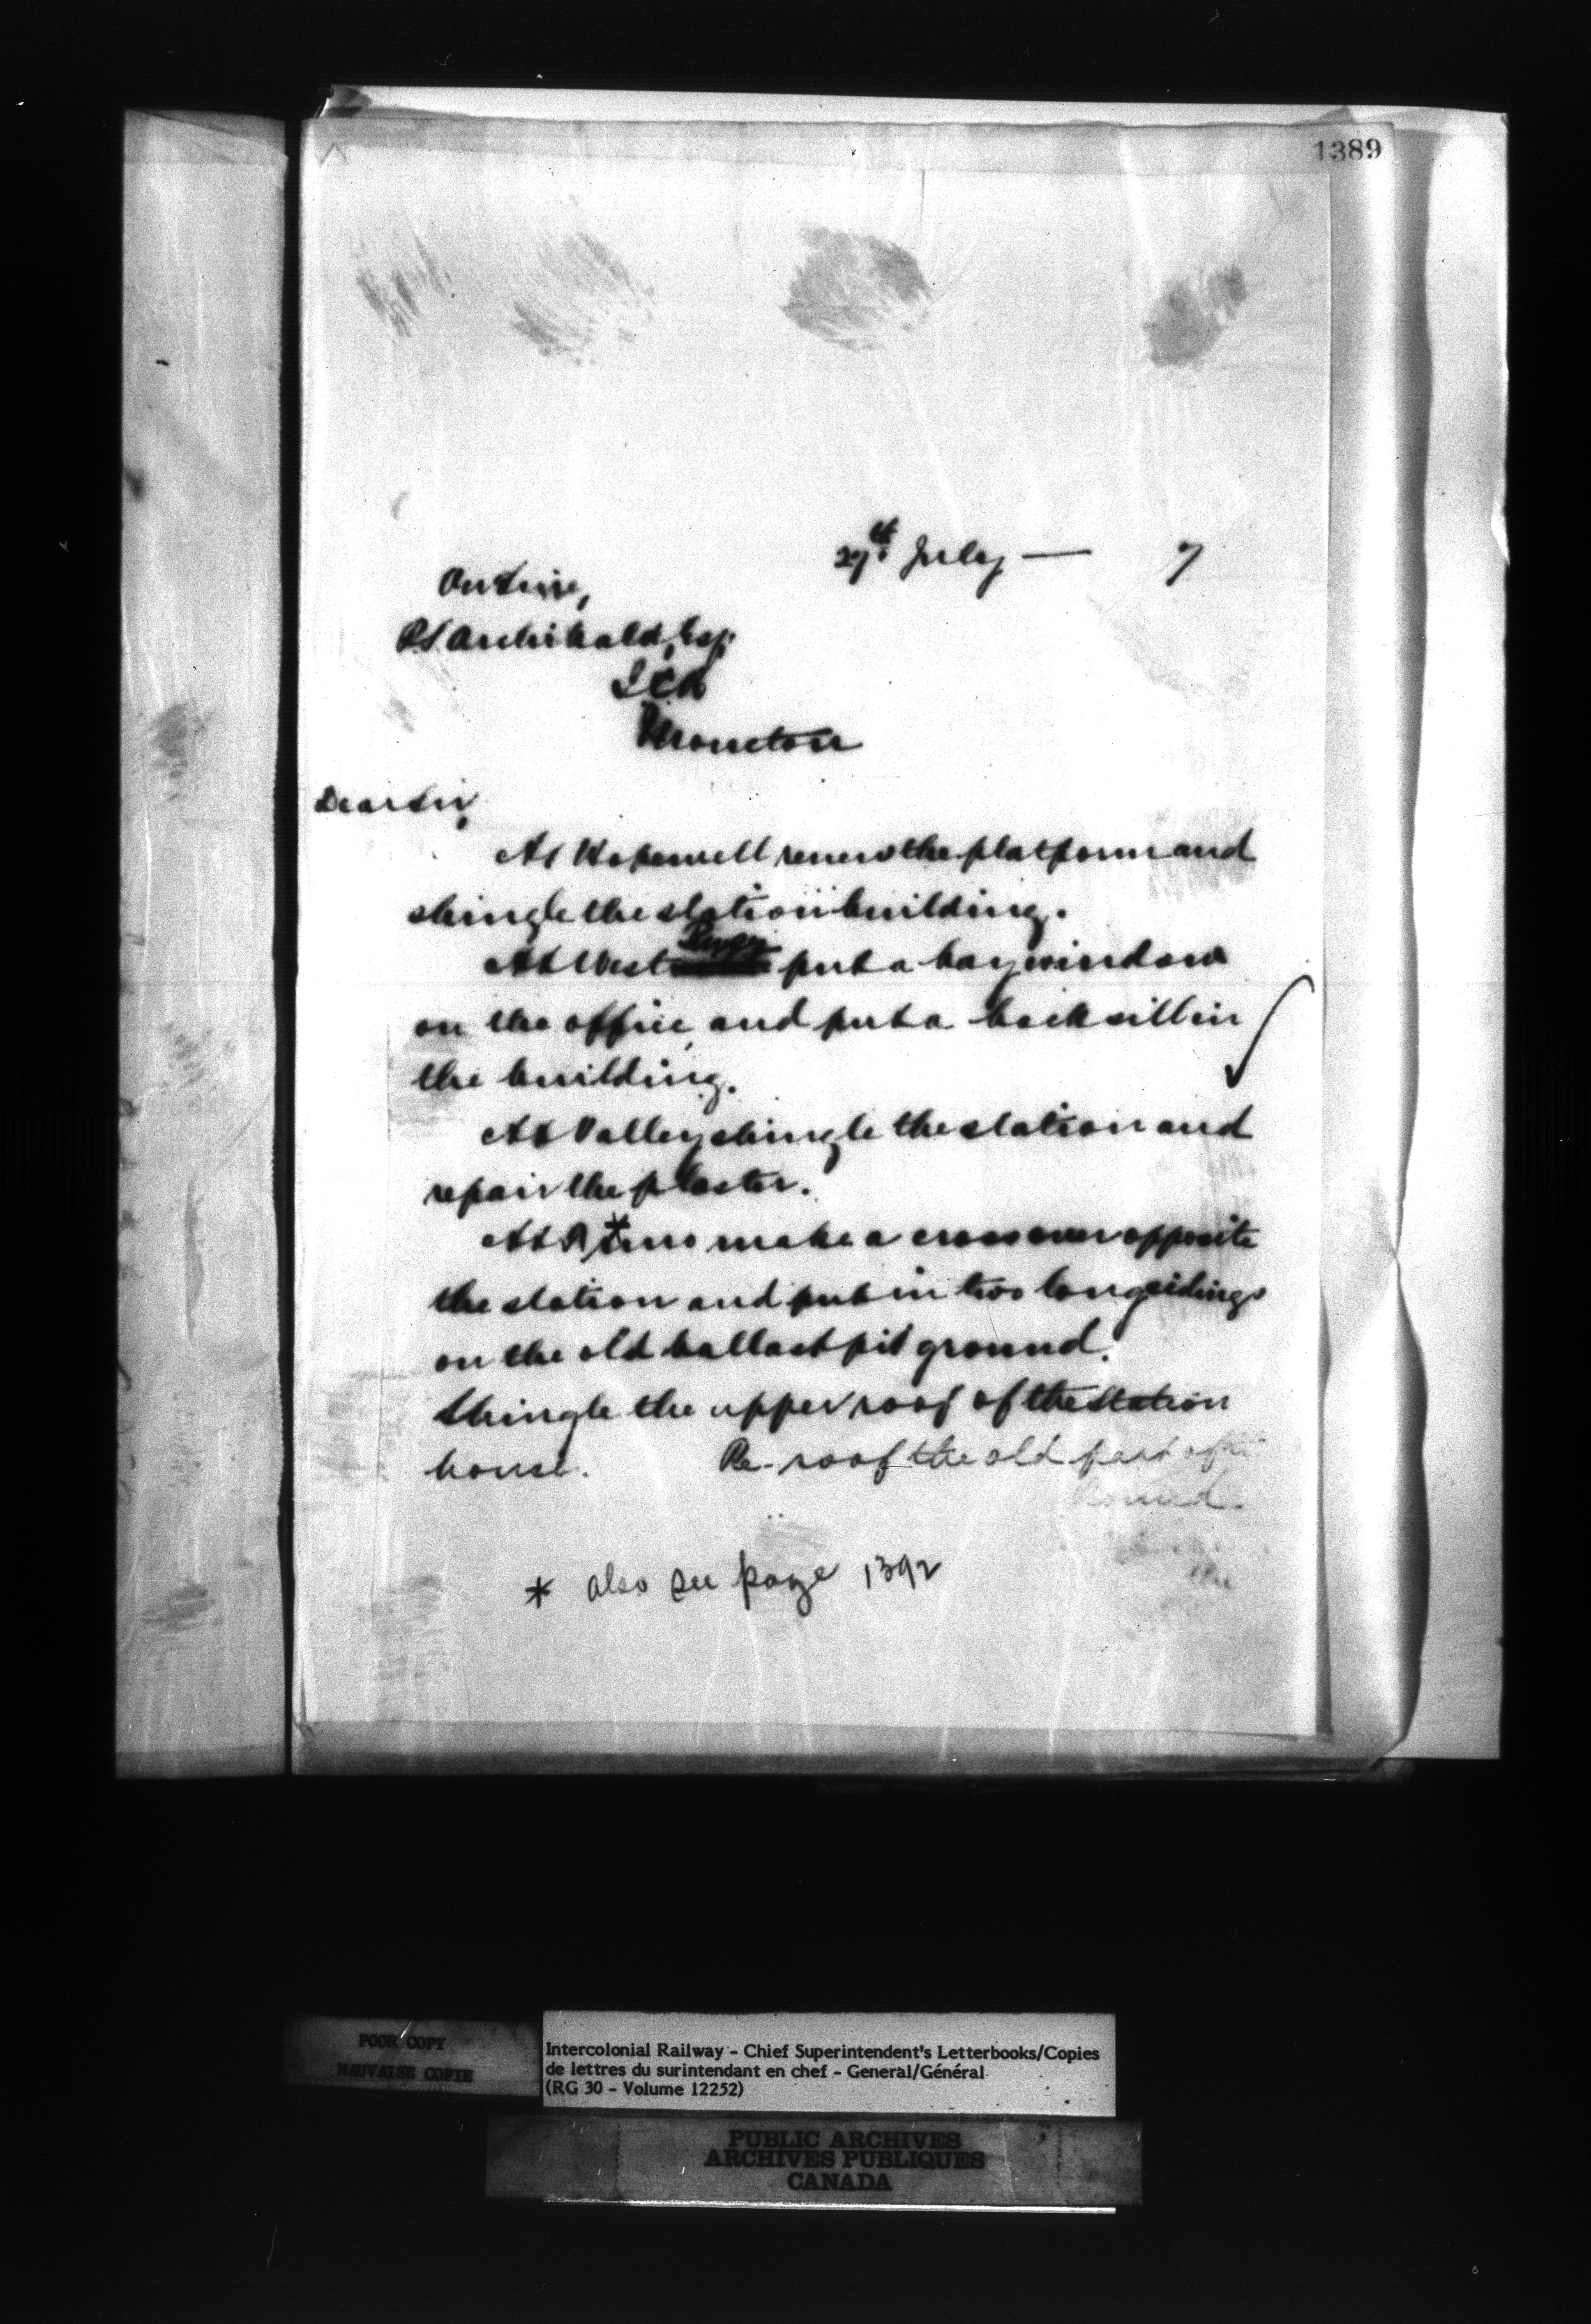 1389
29th July — 7
On Line,
P.S. Archibald, Esq.
ICR
Moncton
Dear Sir,
At Hopewell renew the platform and
shingle the station building.
At West River put a bay window
on the office, and put a back sill in
the building.
At Valley shingle the station and
repair the plaster.
At * make a crossover opposite
the station and put in two long sidings
on the old ballast pit ground.
Shingle the upper roof of the station
house. Re-roof the old part of
* also see page 1392
POOR COPY
MAUVAISE COPIE
Intercolonial Railway - Chief Superintendent's Letterbooks/Copies
de lettres du surintendant en chef - General/Général
(RG 30 - Volume 12252)
PUBLIC ARCHIVES
ARCHIVES PUBLIQUES
CANADA